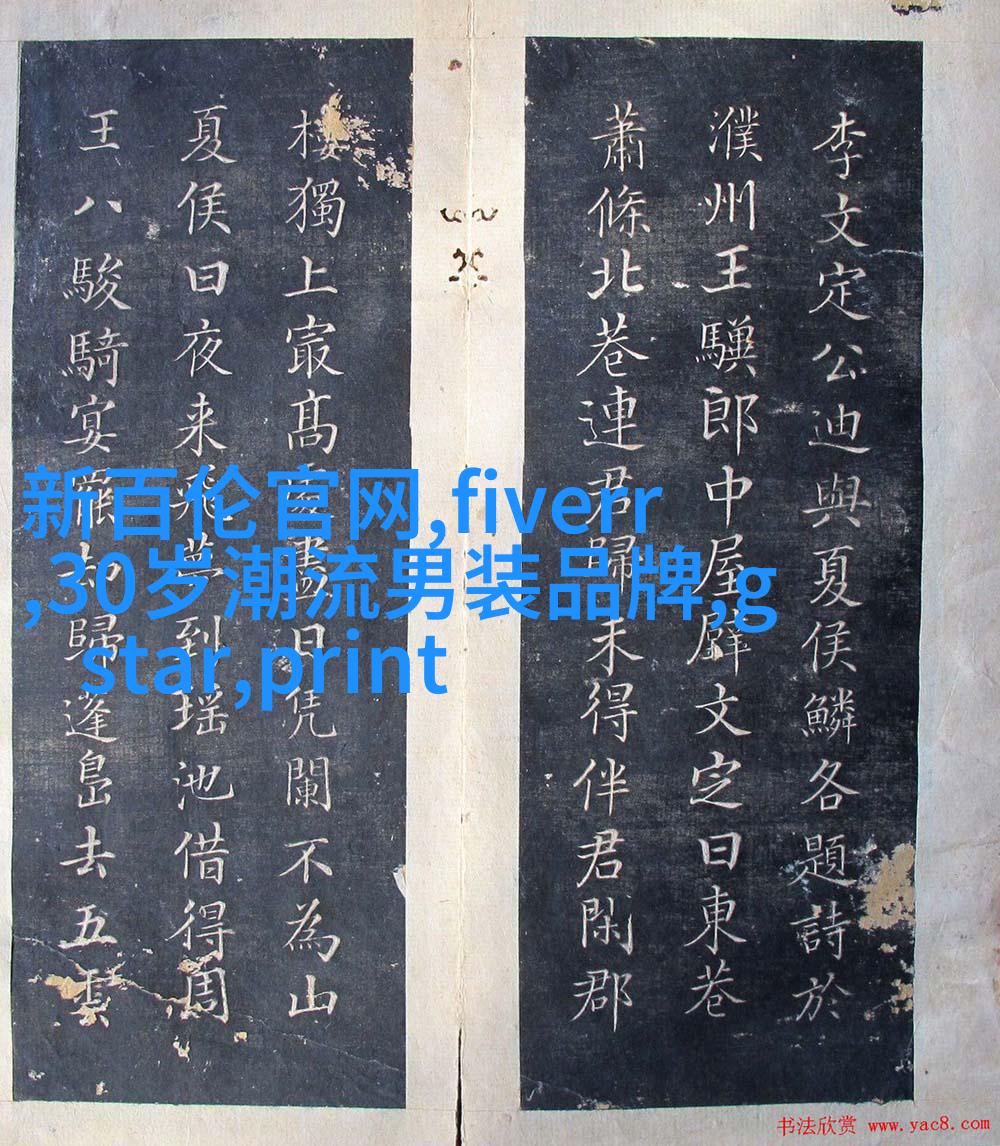 李文定公迪與夏侯鱗各題詩於
濮州王驥郎中屋壁文定曰東巷
蕭條北巷連君歸未得伴君閑郡
樓獨上宸高處盡日凭闌不為山
夏侯曰夜来飛夢到瑶池借得周
王八駿騎宴罷却歸蓬島去五雲
新百伦官网,fiverr
,30岁潮流男装品牌,g
star,print
书法欣赏 www.yac8.com